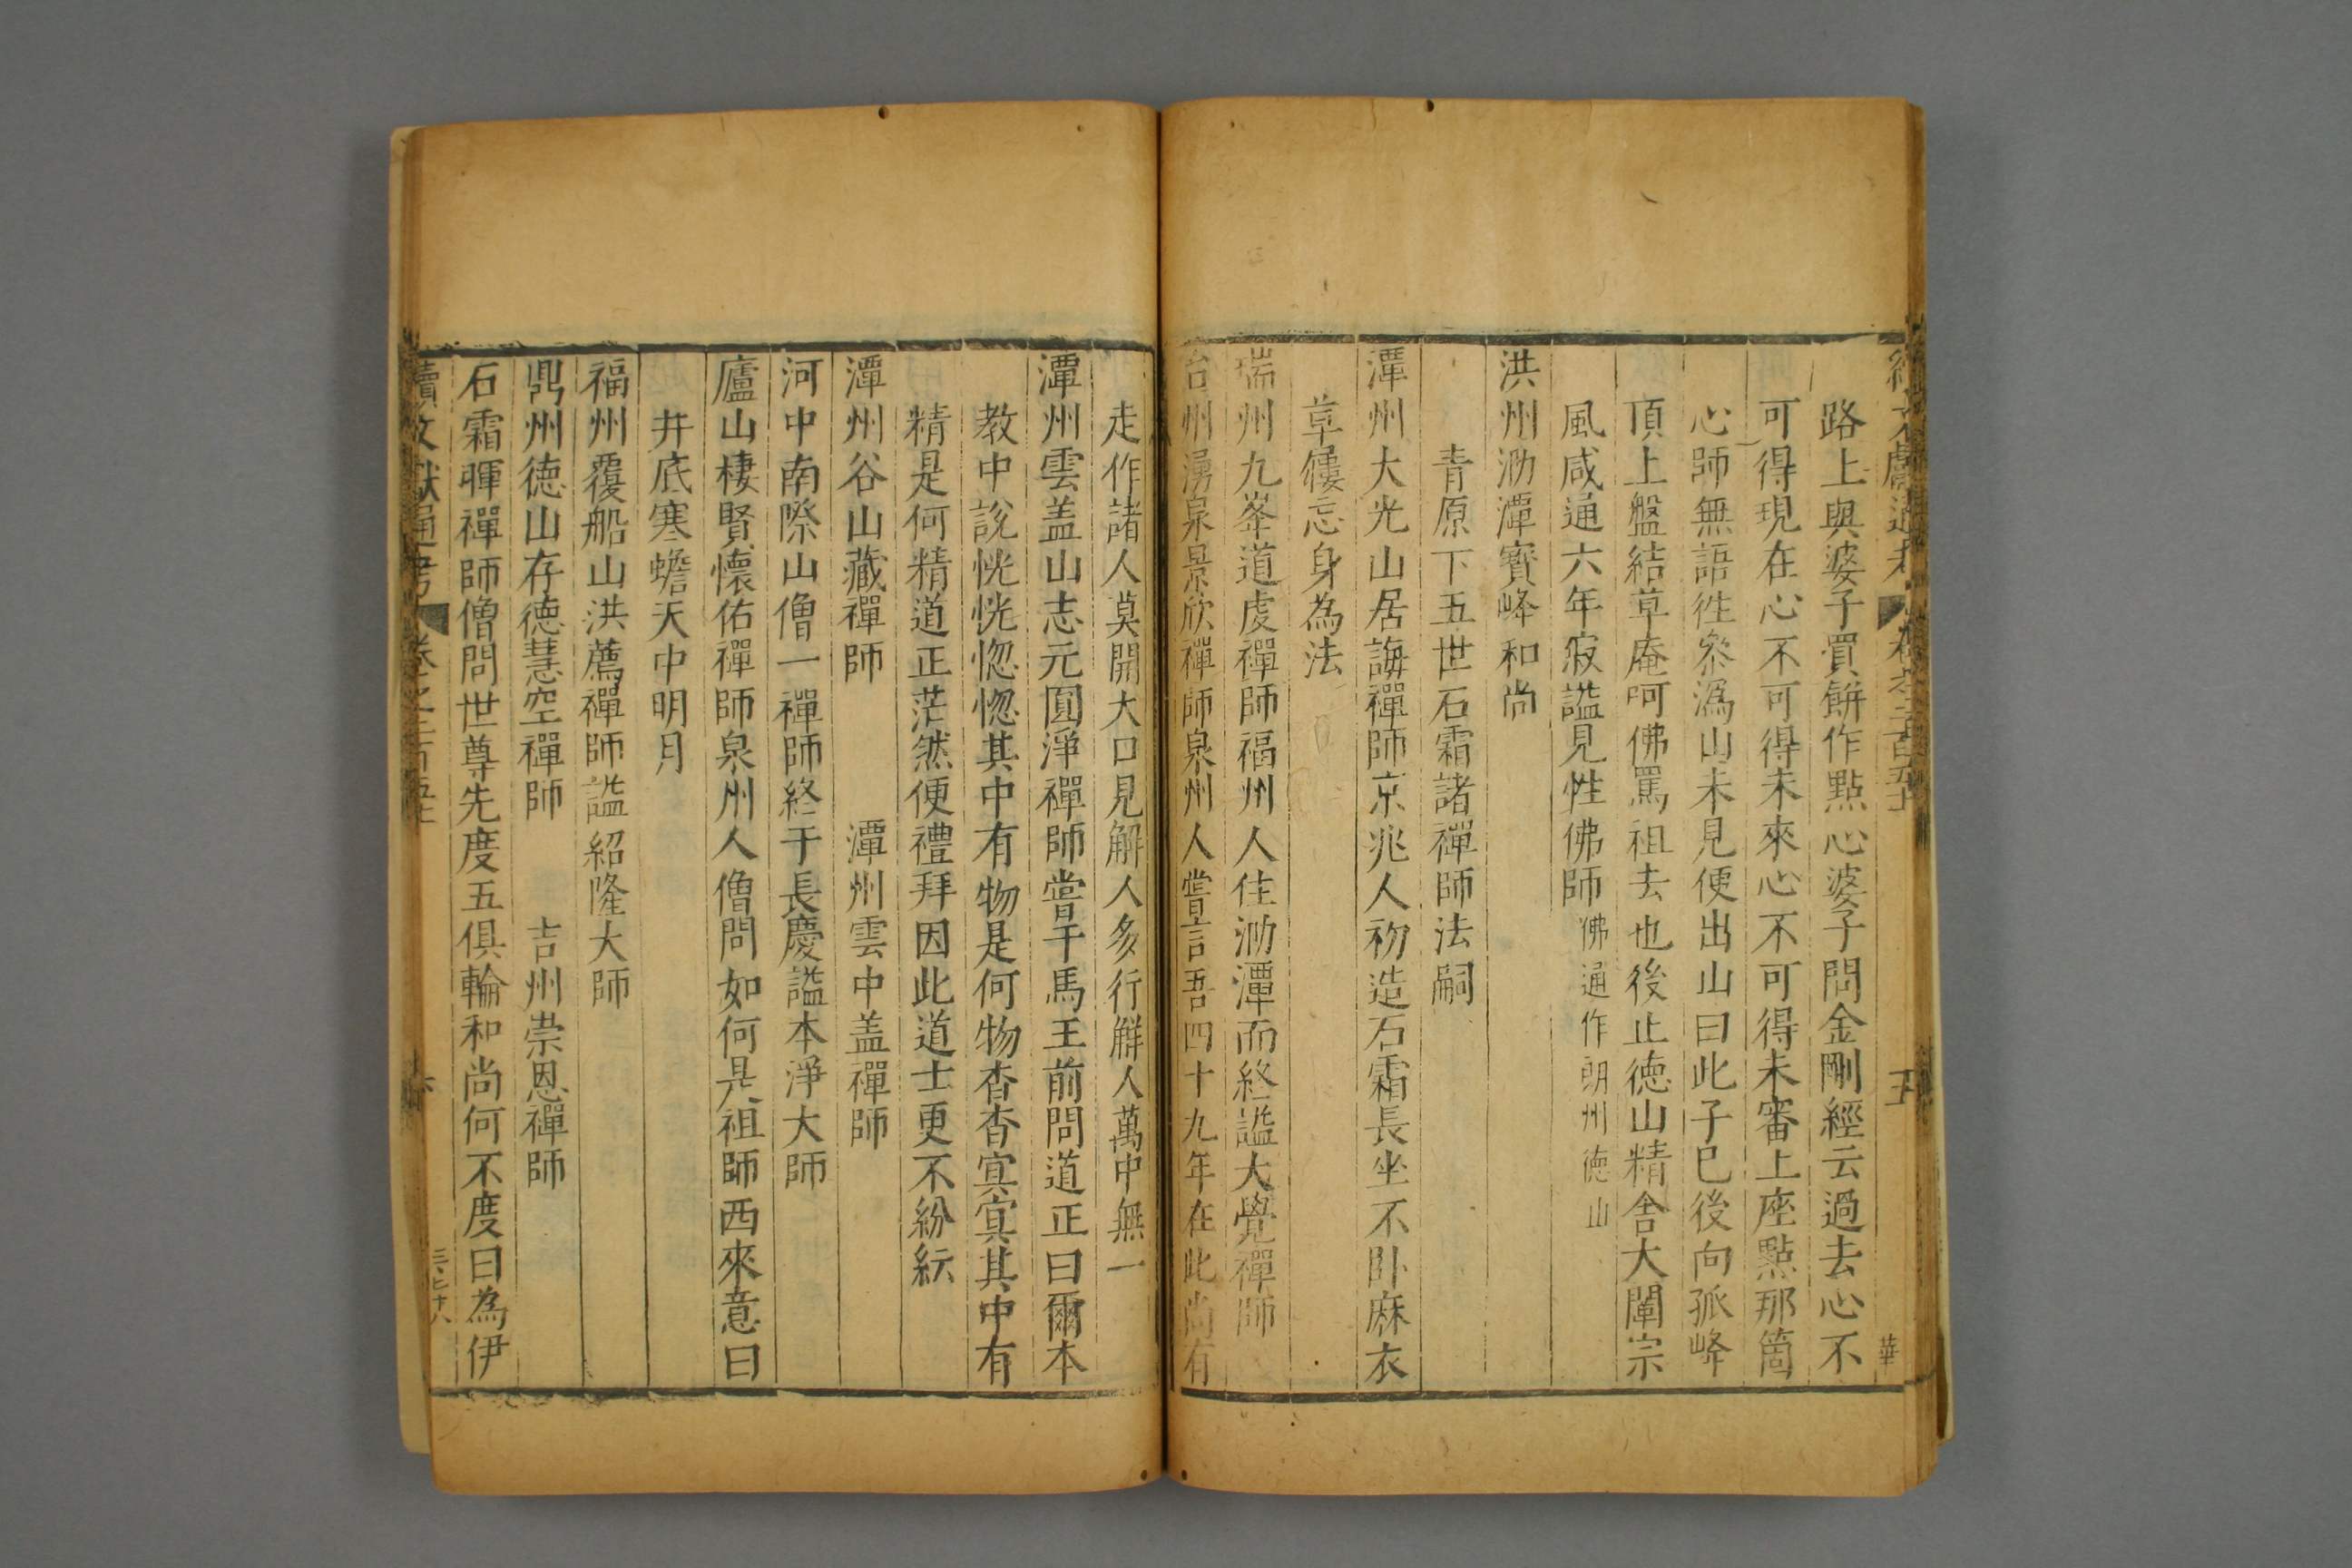 路上與婆子買餅作點心婆子問金剛經云過去心不
可得現在心不可得未來心不可得未審上座點那箇
心師無語徃叅潙山未見便出山曰此子已後向孤峰
頂上盤結草庵呵佛罵祖去也後止德山精舍大闡宗
風咸通六年寂謚見性佛師 佛通作朗州德山
洪州泐潭寳峰和尚
青原下五世石霜諸禪師法嗣
潭州大光山居誨禪師京兆人初造石霜長坐不卧麻衣
草𪨗忘身為法
瑞州九峯道虔禪師福州人住泐潭而終謚大覺禪師
台州湧泉景欣禪師泉州人嘗言吾四十九年在此尚有
走作諸人莫開大口見解人多行解人萬中無一
潭州雲盖山志元圓淨禪師嘗于馬王前問道正曰爾本
教中說恍恍惚惚其中有物是何物杳杳冥冥其中有
精是何精道正茫然便禮拜因此道士更不紛紜
潭州谷山藏禪師 潭州雲中盖禪師
河中南際山僧一禪師終于長慶謚本淨大師
廬山棲賢懷佑禪師泉州人僧問如何是祖師西來意曰
井底寒蟾天中明月
福州覆船山洪薦禪師謚紹隆大師
鼎州德山存德慧空禪師 吉州崇恩禪師
石霜暉禪師僧問世尊先度五俱輪和尚何不度曰為伊
續文獻通考 卷之二百五十